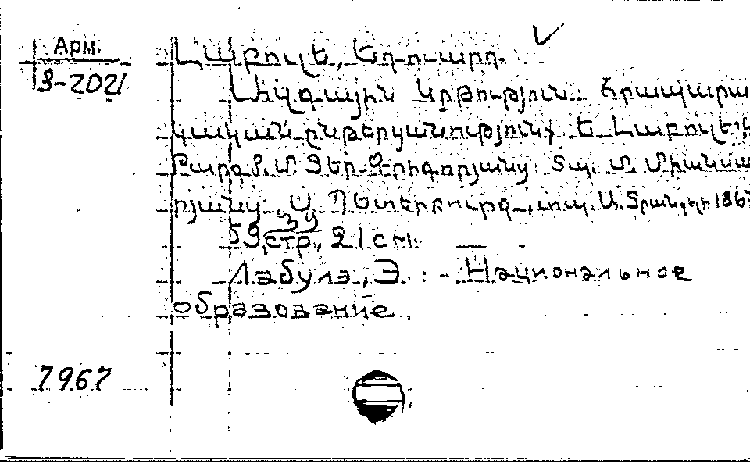 Арм.
3-2021
Լաբուլե, Եդուարդ.
Ազգային կրթություն: Հրապարա
կական ընթերցանություն Ե. Լաբուլեի
Բարգ. Ք. Մ. Տեր-Գրիգորյանց. Տպ. Մ. Միանսա
րյանց. Ս. Պետերբուրգ, տպ. Ա. Տրանշելի 186
39
59 стр., 21 см. —
Лабулэ, Э. : - Национальное
образование.
7967